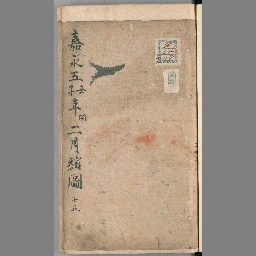 嘉永五壬子年
閏二月類圖
十五